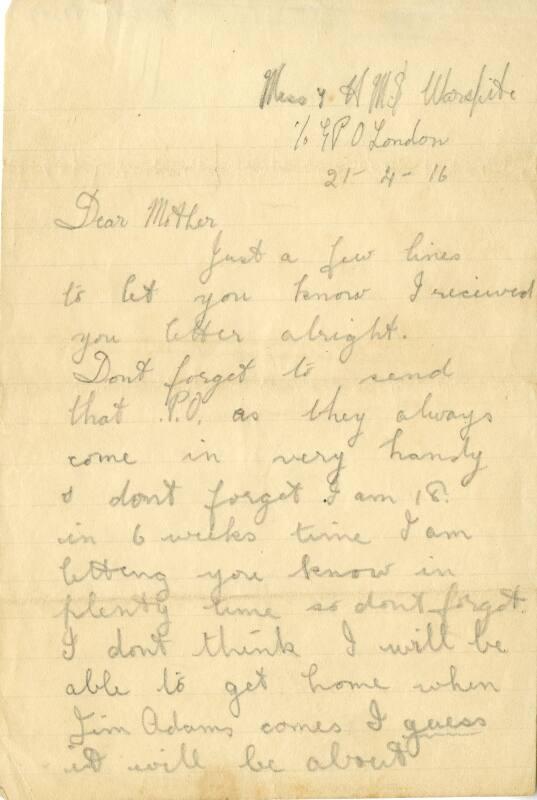 Mess y H M S Warspite
c/o G P O London
21 - 4 - 16
Dear Mother
Just a few lines
to let you know I received
you letter alright.
Dont forget to send
that P.O. as they always
come in very handy
& dont forget I am 18.
in 6 weeks time I am
letting you know in
plenty time so dont forget.
I dont think I will be
able to get home when
Jim Adams comes I guess
it will be about